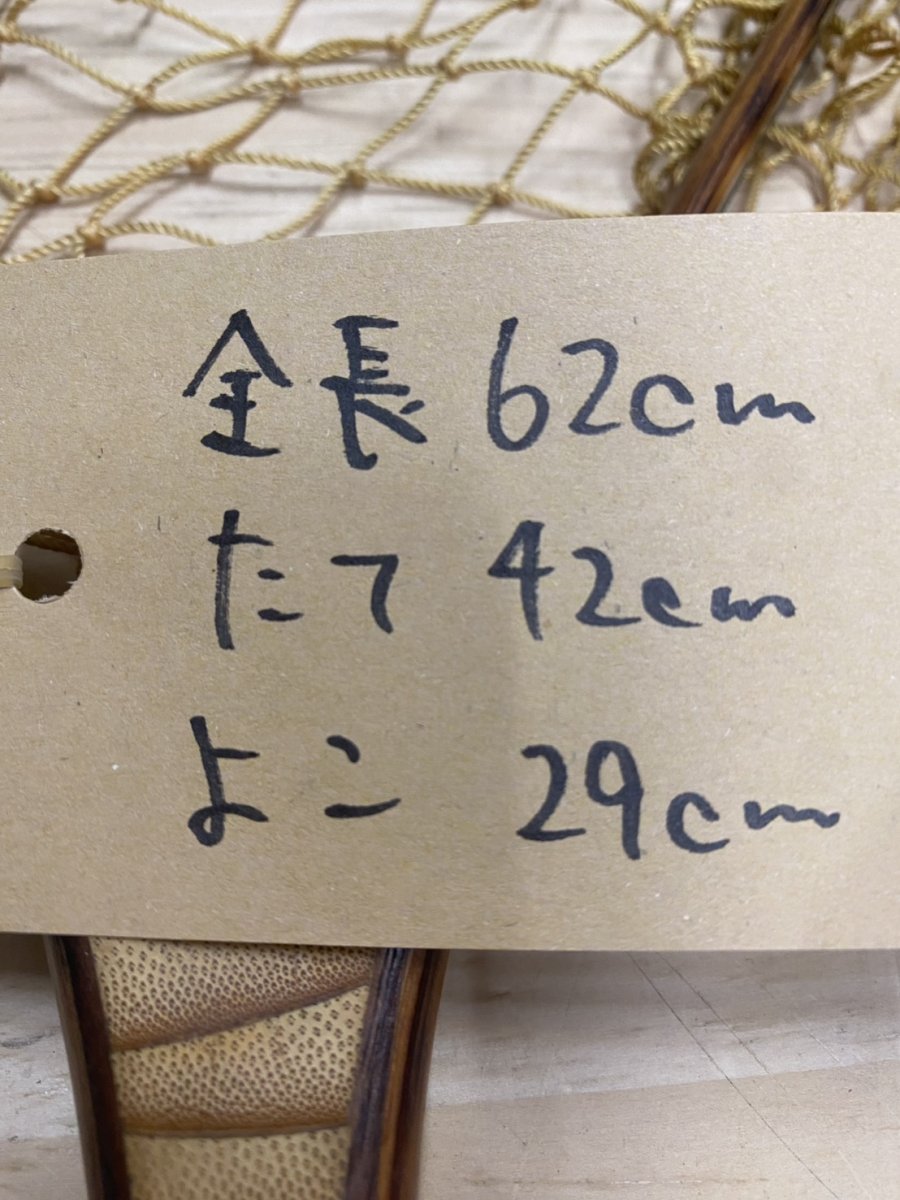 全長 62cm
たて 42cm
よこ 29cm